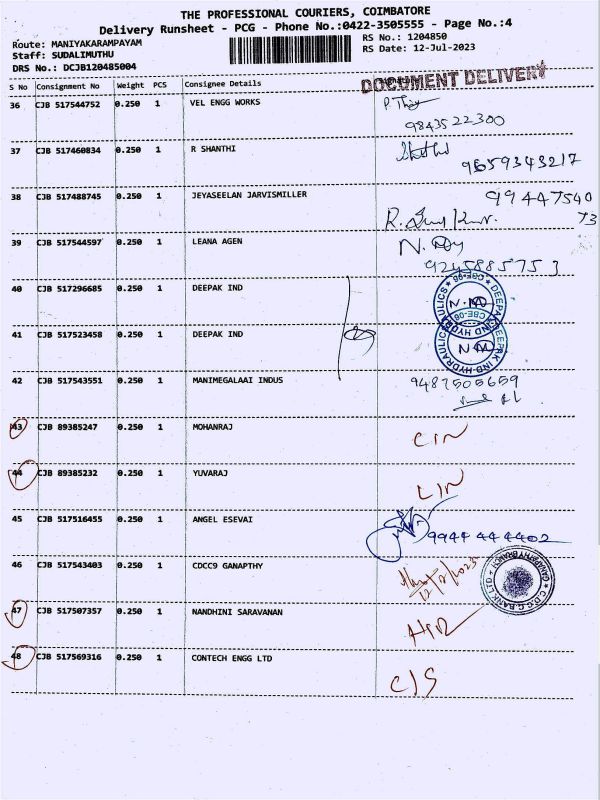 THE PROFESSIONAL COURIERS, COIMBATORE
Delivery Runsheet - PCG - Phone No.:0422-3505555 - Page No.:4
Route: MANIYAKARAMPAYAM
RS No.: 1204850
Staff: SUDALIMUTHU
RS Date: 12-Jul-2023
DRS No.: DCJB120485004
DOCUMENT DELIVERY
S No Consignment No Weight PCS Consignee Details
36 CJB 517544752 0.250 1 VEL ENGG WORKS
9843522300
37 CJB 517460834 0.250 1 R SHANTHI
9659343217
38 CJB 517488745 0.250 1 JEYASEELAN JARVISMILLER 99447540
73
39 CJB 517544597 0.250 1 LEANA AGEN
9245885753
40 CJB 517296685 0.250 1 DEEPAK IND
DEEPAK IND HYDRAULICS CBE-06
41 CJB 517523458 0.250 1 DEEPAK IND
DEEPAK IND HYDRAULICS CBE-06
42 CJB 517543551 0.250 1 MANIMEGALAAI INDUS 9487505659
43 CJB 89385247 0.250 1 MOHANRAJ CIN
44 CJB 89385232 0.250 1 YUVARAJ CIN
45 CJB 517516455 0.250 1 ANGEL ESEVAI 9944444402
46 CJB 517543403 0.250 1 CDCC9 GANAPTHY
C.D.C.C. BANK LTD GANAPATHY BRANCH
47 CJB 517507357 0.250 1 NANDHINI SARAVANAN
48 CJB 517569316 0.250 1 CONTECH ENGG LTD C/S